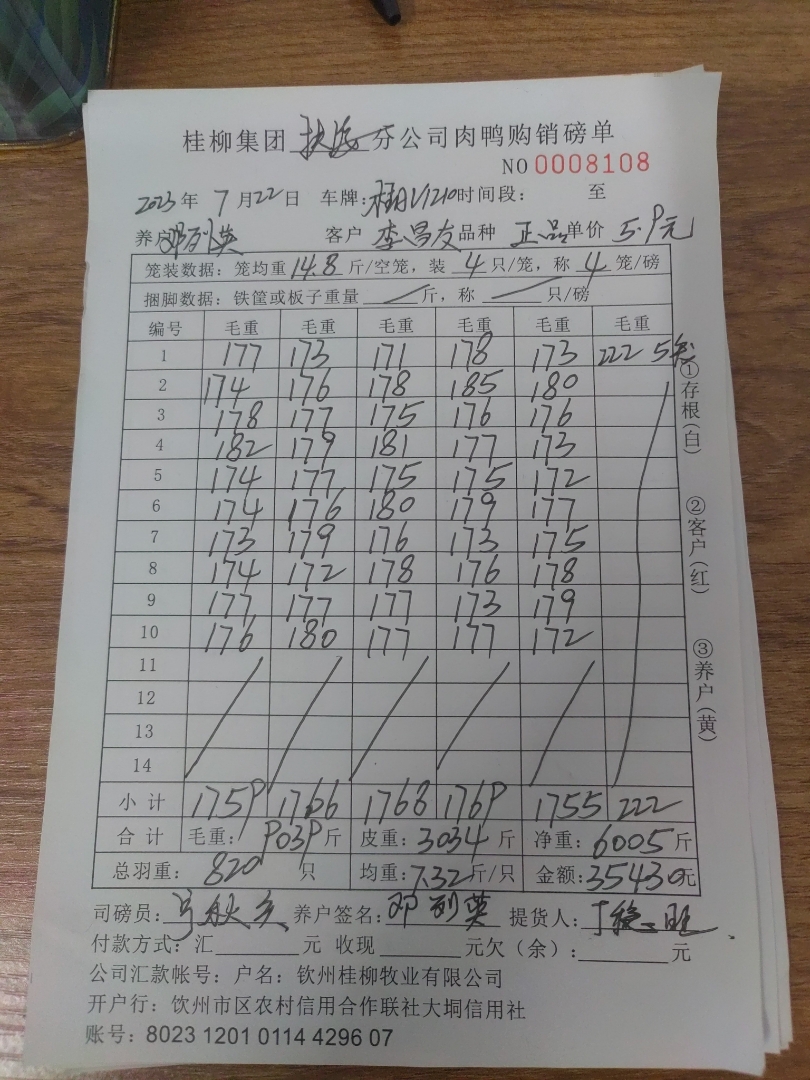 桂柳集团 分公司肉鸭购销磅单
NO 0008108
2023年 7月22日 车牌: 时间段: 至
养户 邓列英 客户 李昌友 品种 正品 单价 5.9元
笼装数据: 笼均重 14.8 斤/空笼, 装 4 只/笼, 称 4 笼/磅
捆脚数据: 铁筐或板子重量 斤, 称 只/磅
编号 毛重 毛重 毛重 毛重 毛重 毛重
1 177 173 171 178 173 222 5
2 174 176 178 185 180
3 178 177 175 176 176
4 182 179 181 177 173
5 174 177 175 175 172
6 174 176 180 179 177
7 173 179 176 173 175
8 174 172 178 176 178
9 177 177 177 173 179
10 176 180 177 177 172
11
12
13
14
小计 1759 1766 1768 1769 1755 222
合计 毛重: 9039斤 皮重: 3034 斤 净重: 6005斤
总羽重: 820 只 均重: 7.32斤/只 金额: 35430元
司磅员: 养户签名: 邓列英 提货人:
付款方式: 汇 元 收现 元欠(余): 元
公司汇款帐号: 户名: 钦州桂柳牧业有限公司
开户行: 钦州市区农村信用合作联社大垌信用社
账号: 8023 1201 0114 4296 07
①存根(白)
②客户(红)
③养户(黄)